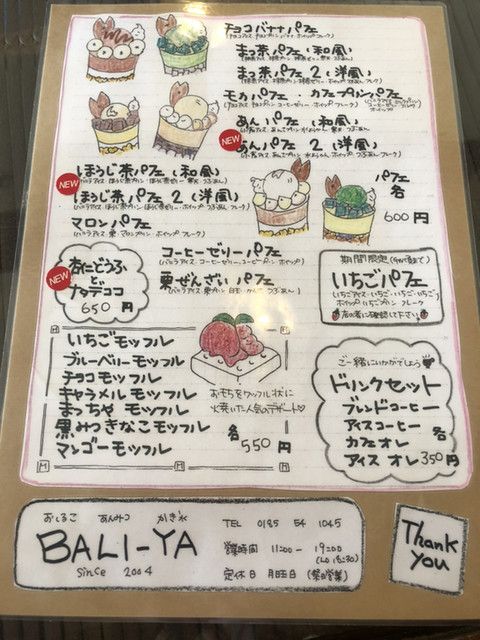 チョコバナナパフェ
まっ茶パフェ (和風)
まっ茶パフェ 2 (洋風)
モカパフェ・カフェプリンパフェ
あんパフェ (和風)
NEW
あんパフェ 2 (洋風)
NEW
ほうじ茶パフェ (和風)
ほうじ茶パフェ 2 (洋風)
パフェ
各
600円
マロンパフェ
コーヒーゼリーパフェ
(バニラアイス・コーヒーゼリー・コーヒープリン・ホイップ)
栗ぜんざいパフェ
NEW
杏仁どうふ
と
ナタデココ
650円
期間限定
いちごパフェ
いちごアイス・いちご・いちご・いちご
ホイップ・いちごプリン フレーク
店の者に確認して下さい
いちごモッフル
ブルーベリーモッフル
チョコモッフル
キャラメルモッフル
まっちゃモッフル
黒みつきなこモッフル
マンゴーモッフル
おもちをワッフル状に
焼いた人気のデザート♡
各550円
ご一緒にいかがでしょう
ドリンクセット
ブレンドコーヒー
アイスコーヒー
カフェオレ
アイスオレ
各
350円
おしるこ あんみつ かき氷
BALI-YA
since 2004
TEL 0185 54 1045
営業時間 11:00-19:00
(L.O 18:30)
定休日 月曜日 (祭日営業)
Thank
you